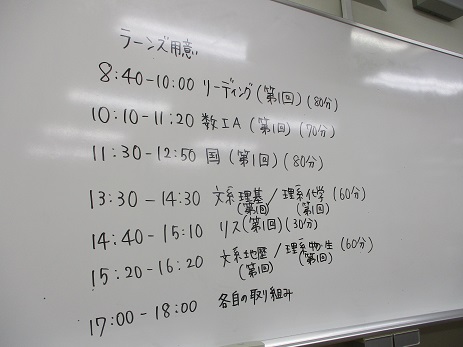 ラーンズ用意
8:40-10:00 リーディング(第1回)(80分)
10:10-11:20 数ⅠA (第1回) (70分)
11:30-12:50 国 (第1回) (80分)
13:30-14:30 文系理基/理系化学(60分)
(第1回) (第1回)
14:40-15:10 リス(第1回)(30分)
15:20-16:20 文系地歴/理系物・生(60分)
(第1回) (第1回)
17:00-18:00 各自の取り組み